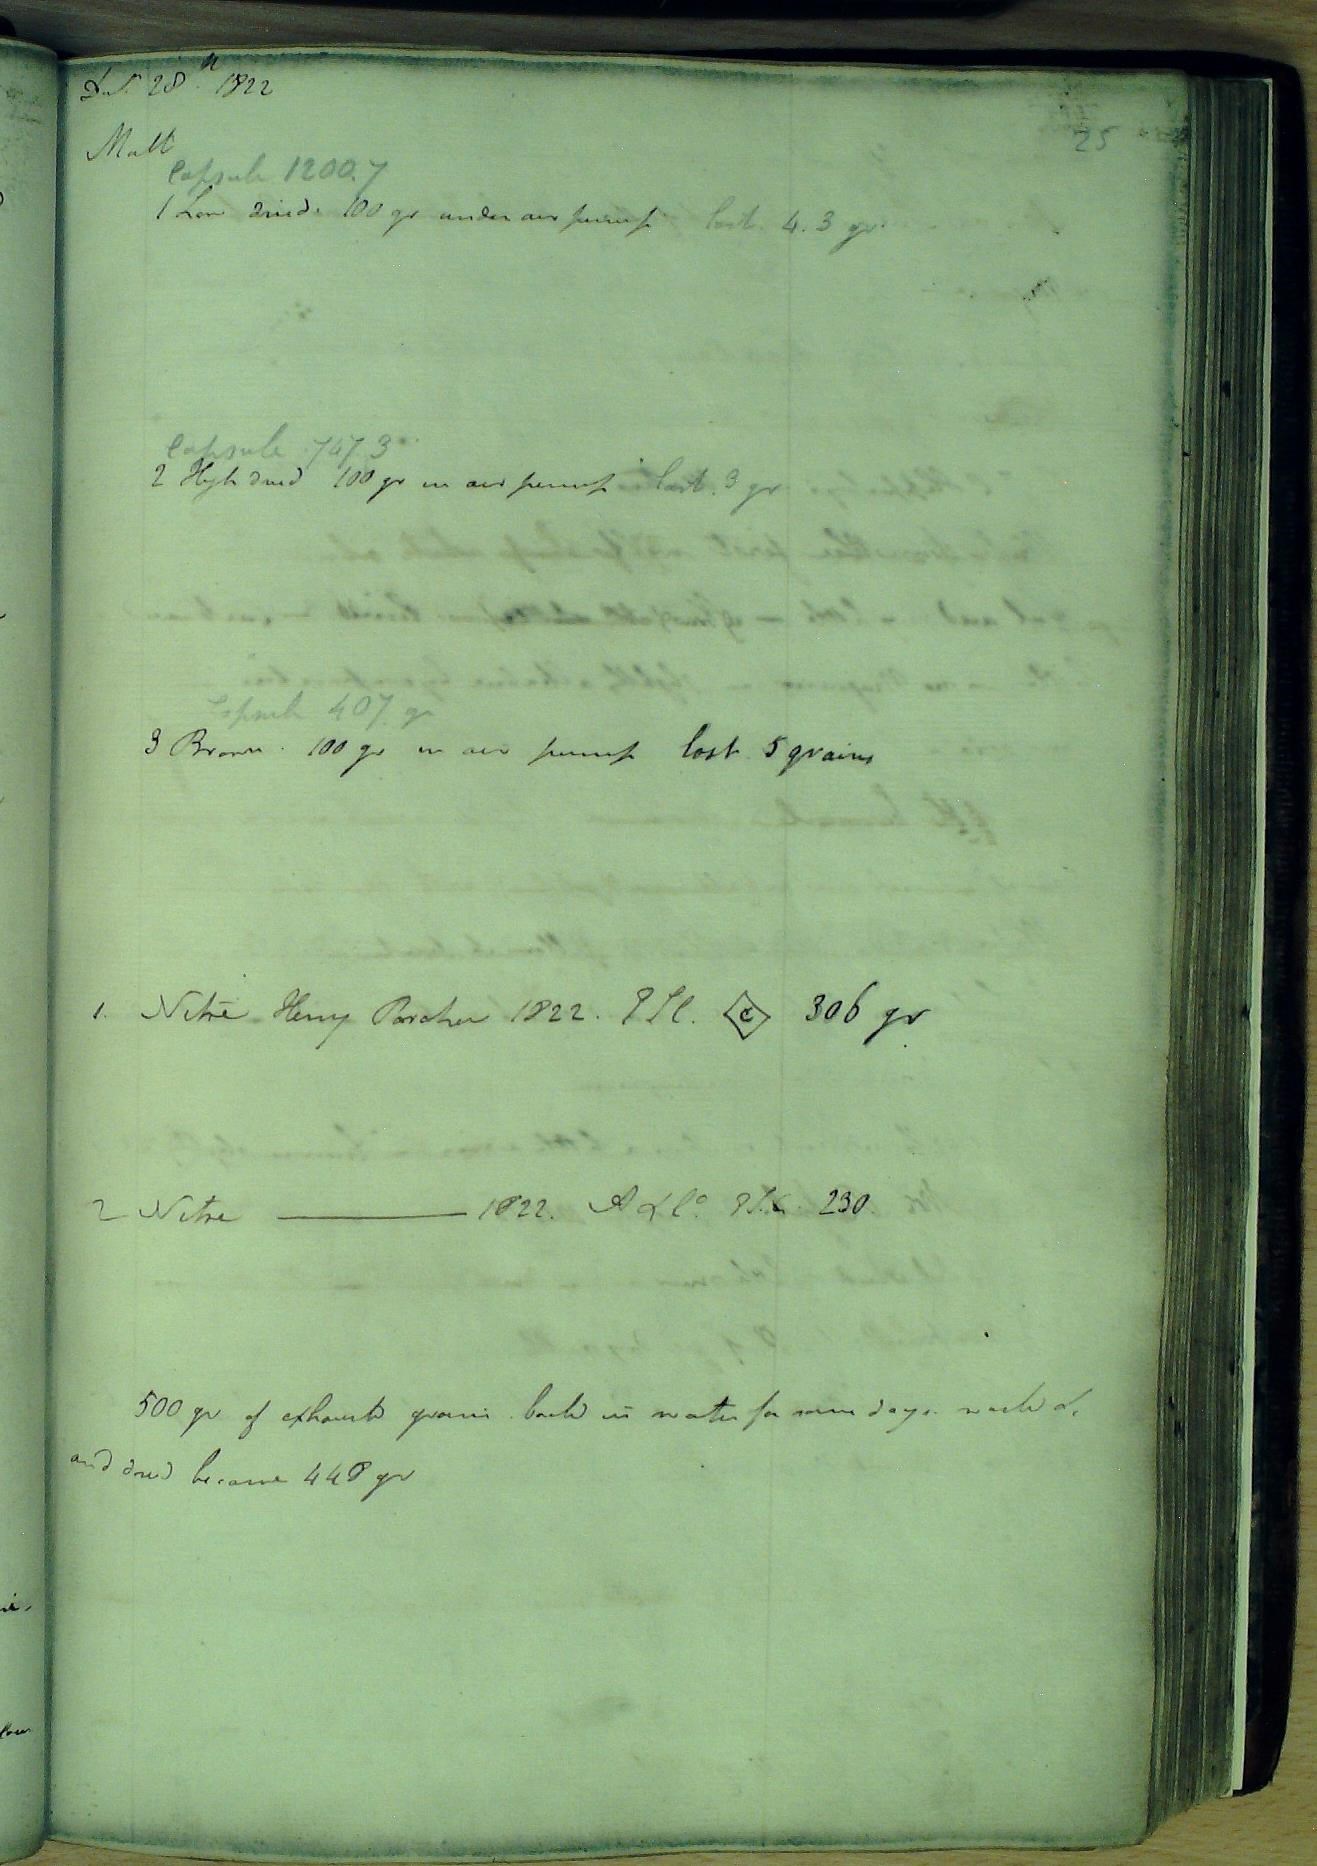 28th 1822
25
Malt
Capsule 1200.7
1 Low dried. 100 gr under air pump lost. 4.3 gr
Capsule 747.3
2 High dried 100 gr in air pump lost. 3 gr
Capsule 407. gr
3 Brown. 100 gr in air pump lost 5 grains
1. Nitre Henry Porcher 1822. C 306 gr
2 Nitre 1822. A & Co. 230
500 gr of exhausted grains in water for some days. washed
and dried became 448 gr